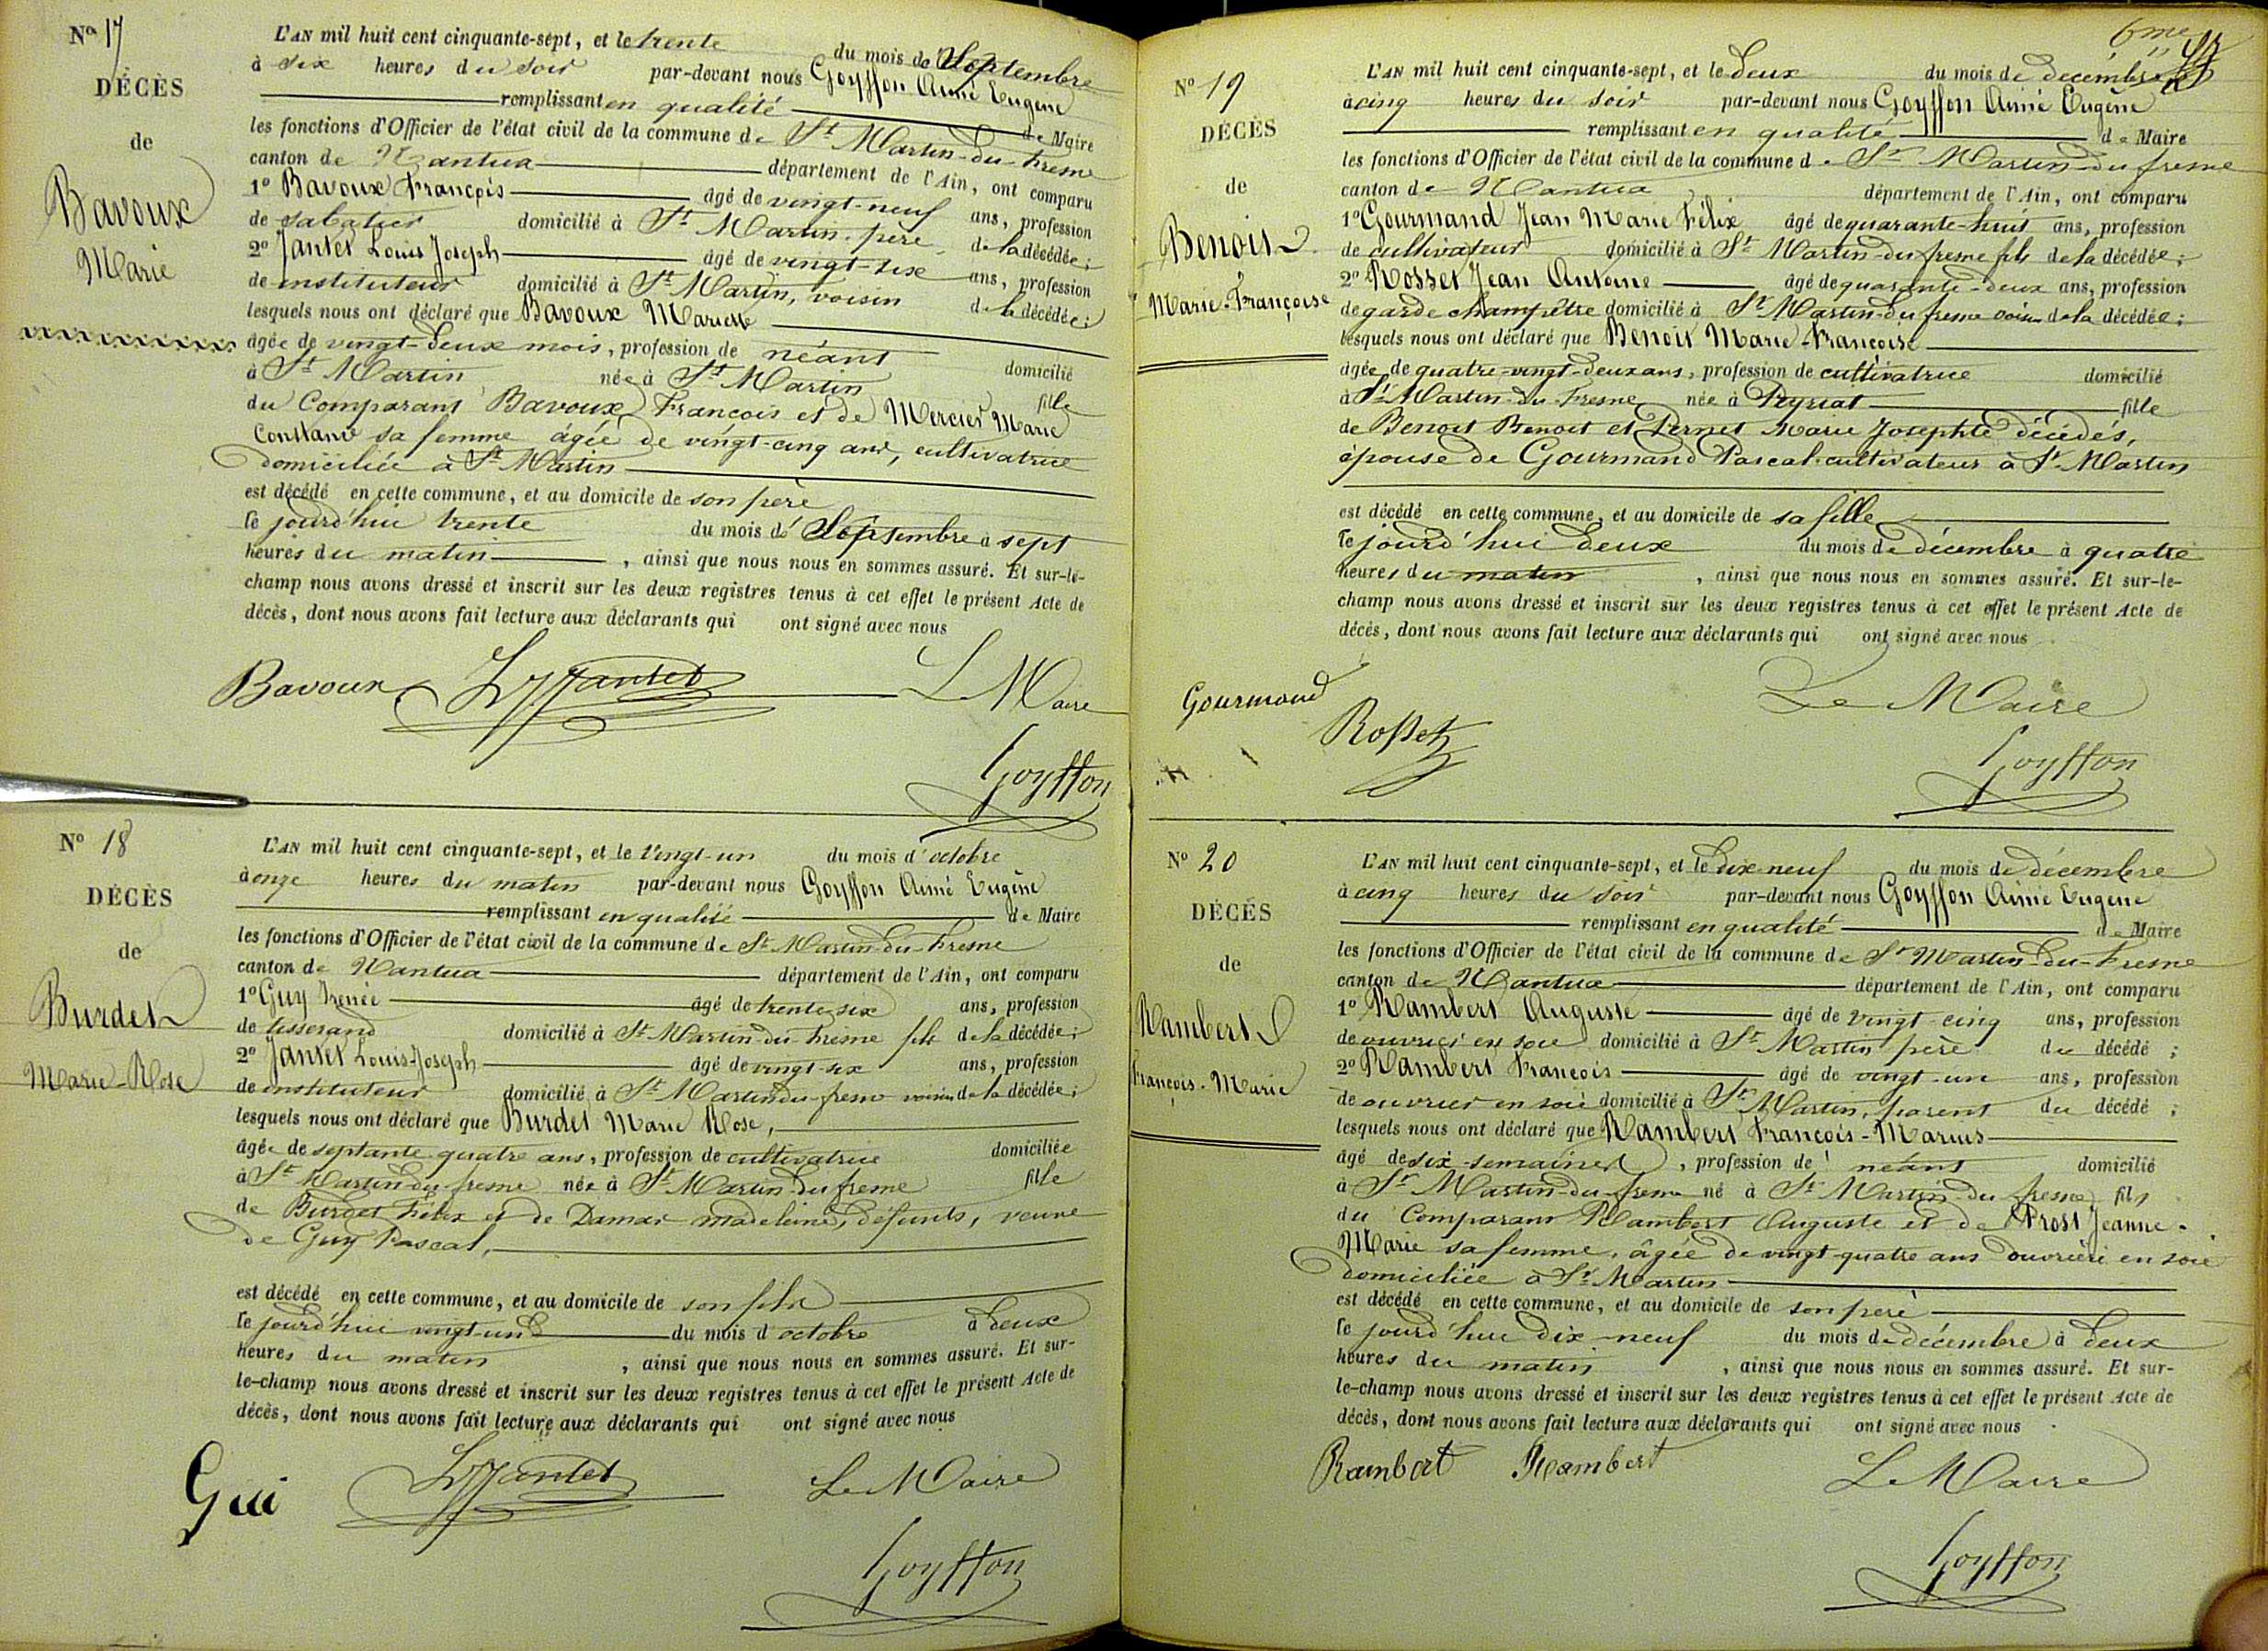 No 17
DÉCÈS
de
Bavoux
Marie
L'AN mil huit cent cinquante-sept, et le trente du mois de Septembre
à six heures du soir par-devant nous Goyffon Aimé Eugène
remplissant en qualité de Maire
les fonctions d'Officier de l'état civil de la commune de St Martin-du-Fresne
canton de Nantua département de l'Ain, ont comparu
1o Bavoux François âgé de vingt-neuf ans, profession
de sabatier domicilié à St Martin, père de la décédée;
2o Jantet Louis Joseph âgé de vingt-six ans, profession
de instituteur domicilié à St Martin, voisin de la décédée;
lesquels nous ont déclaré que Bavoux Marie
âgée de vingt-deux mois, profession de néant domicilié
à St Martin née à St Martin fille
du Comparant Bavoux François et de Mercier Marie
Constance sa femme âgée de vingt-cinq ans, cultivatrice
domiciliée à St Martin
est décédé en cette commune, et au domicile de son père
le jourd'hui trente du mois de Septembre à sept
heures du matin, ainsi que nous nous en sommes assuré. Et sur-le-
champ nous avons dressé et inscrit sur les deux registres tenus à cet effet le présent Acte de
décès, dont nous avons fait lecture aux déclarants qui ont signé avec nous
Bavoux LJJantet Le Maire
Goyffon
No 18
DÉCÈS
de
Burdet
Marie-Rose
L'AN mil huit cent cinquante-sept, et le vingt-un du mois d'octobre
à onze heures du matin par-devant nous Goyffon Aimé Eugène
remplissant en qualité de Maire
les fonctions d'Officier de l'état civil de la commune de St Martin-du-Fresne
canton de Nantua département de l'Ain, ont comparu
1o Guy Irenée âgé de trente-six ans, profession
de tisserand domicilié à St Martin-du-Fresne fils de la décédée;
2o Jantet Louis-Joseph âgé de vingt-six ans, profession
de instituteur domicilié à St Martin du-fresne voisin de la décédée;
lesquels nous ont déclaré que Burdet Marie Rose,
âgée de septante quatre ans, profession de cultivatrice domiciliée
à St Martin du fresne née à St Martin du fresne fille
de Burdet Félix et de Damas madeleine, défunts, veuve
de Guy Pascal,
est décédé en cette commune, et au domicile de son fils
le jourd'hui vingt-un du mois d'octobre à deux
heures du matin, ainsi que nous nous en sommes assuré. Et sur-
le-champ nous avons dressé et inscrit sur les deux registres tenus à cet effet le présent Acte de
décès, dont nous avons fait lecture aux déclarants qui ont signé avec nous
Gui LJJantet Le Maire
Goyffon
6me
No 19
DÉCÈS
de
Benoit
Marie-Françoise
L'AN mil huit cent cinquante-sept, et le deux du mois de décembre
à cinq heures du soir par-devant nous Goyffon Aimé Eugène
remplissant en qualité de Maire
les fonctions d'Officier de l'état civil de la commune de St Martin-du fresne
canton de Nantua département de l'Ain, ont comparu
1o Gourmand Jean Marie Félix âgé de quarante-huit ans, profession
de cultivateur domicilié à St Martin-du fresne fils de la décédée;
2o Rosset Jean Antoine âgé de quarante-deux ans, profession
de garde champêtre domicilié à St Martin-du fresne voisin de la décédée;
lesquels nous ont déclaré que Benoit Marie-Françoise
âgée de quatre-vingt-deux ans, profession de cultivatrice domicilié
à St Martin-du-Fresne née à Peyriat fille
de Benoit Benoit et Pernet Marie Josephte décédés,
épouse de Gourmand Pascal cultivateur à St Martin
est décédé en cette commune, et au domicile de sa fille
le jourd'hui deux du mois de décembre à quatre
heures du matin, ainsi que nous nous en sommes assuré. Et sur-le-
champ nous avons dressé et inscrit sur les deux registres tenus à cet effet le présent Acte de
décès, dont nous avons fait lecture aux déclarants qui ont signé avec nous
Gourmand Rosset Le Maire
Goyffon
No 20
DÉCÈS
de
Rambert
François-Marie
L'AN mil huit cent cinquante-sept, et le dix-neuf du mois de décembre
à cinq heures du soir par-devant nous Goyffon Aimé Eugène
remplissant en qualité de Maire
les fonctions d'Officier de l'état civil de la commune de St Martin-du-Fresne
canton de Nantua département de l'Ain, ont comparu
1o Rambert Auguste âgé de vingt-cinq ans, profession
de ouvrier en soie domicilié à St Martin père du décédé;
2o Rambert François âgé de vingt-un ans, profession
de ouvrier en soie domicilié à St Martin, parent du décédé;
lesquels nous ont déclaré que Rambert François-Marius
âgé de six semaines, profession de néant domicilié
à St Martin-du-fresne né à St Martin-du fresne fils
du Comparant Rambert Auguste et de Prost Jeanne-
Marie sa femme, âgée de vingt-quatre ans ouvrière en soie
domiciliée à St Martin
est décédé en cette commune, et au domicile de son père
le jourd'hui dix-neuf du mois de décembre à deux
heures du matin, ainsi que nous nous en sommes assuré. Et sur-
le-champ nous avons dressé et inscrit sur les deux registres tenus à cet effet le présent Acte de
décès, dont nous avons fait lecture aux déclarants qui ont signé avec nous
Rambert Rambert Le Maire
Goyffon